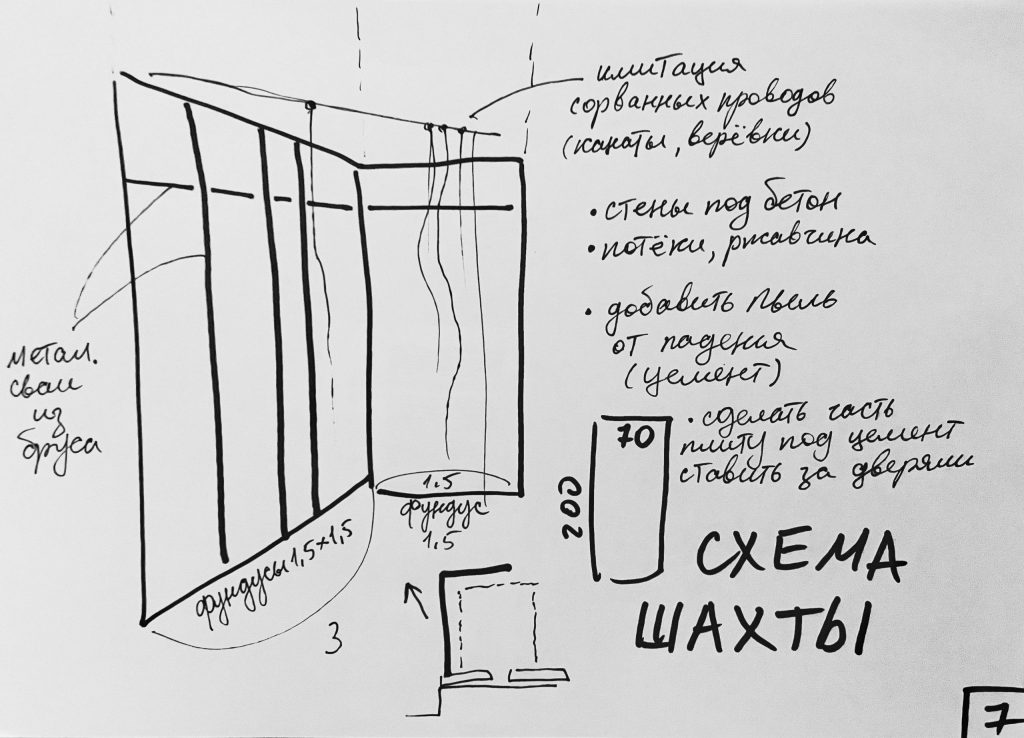 имитация
сорванных проводов
(канаты, верёвки)
• стены под бетон
• потёки, ржавчина
• добавить пыль
от падения
(цемент)
• сделать часть
плиту под цемент
ставить за дверями
метал.
сваи
из
бруса
70
200
1,5
фундус
1,5
фундусы 1,5×1,5
3
СХЕМА
ШАХТЫ
7